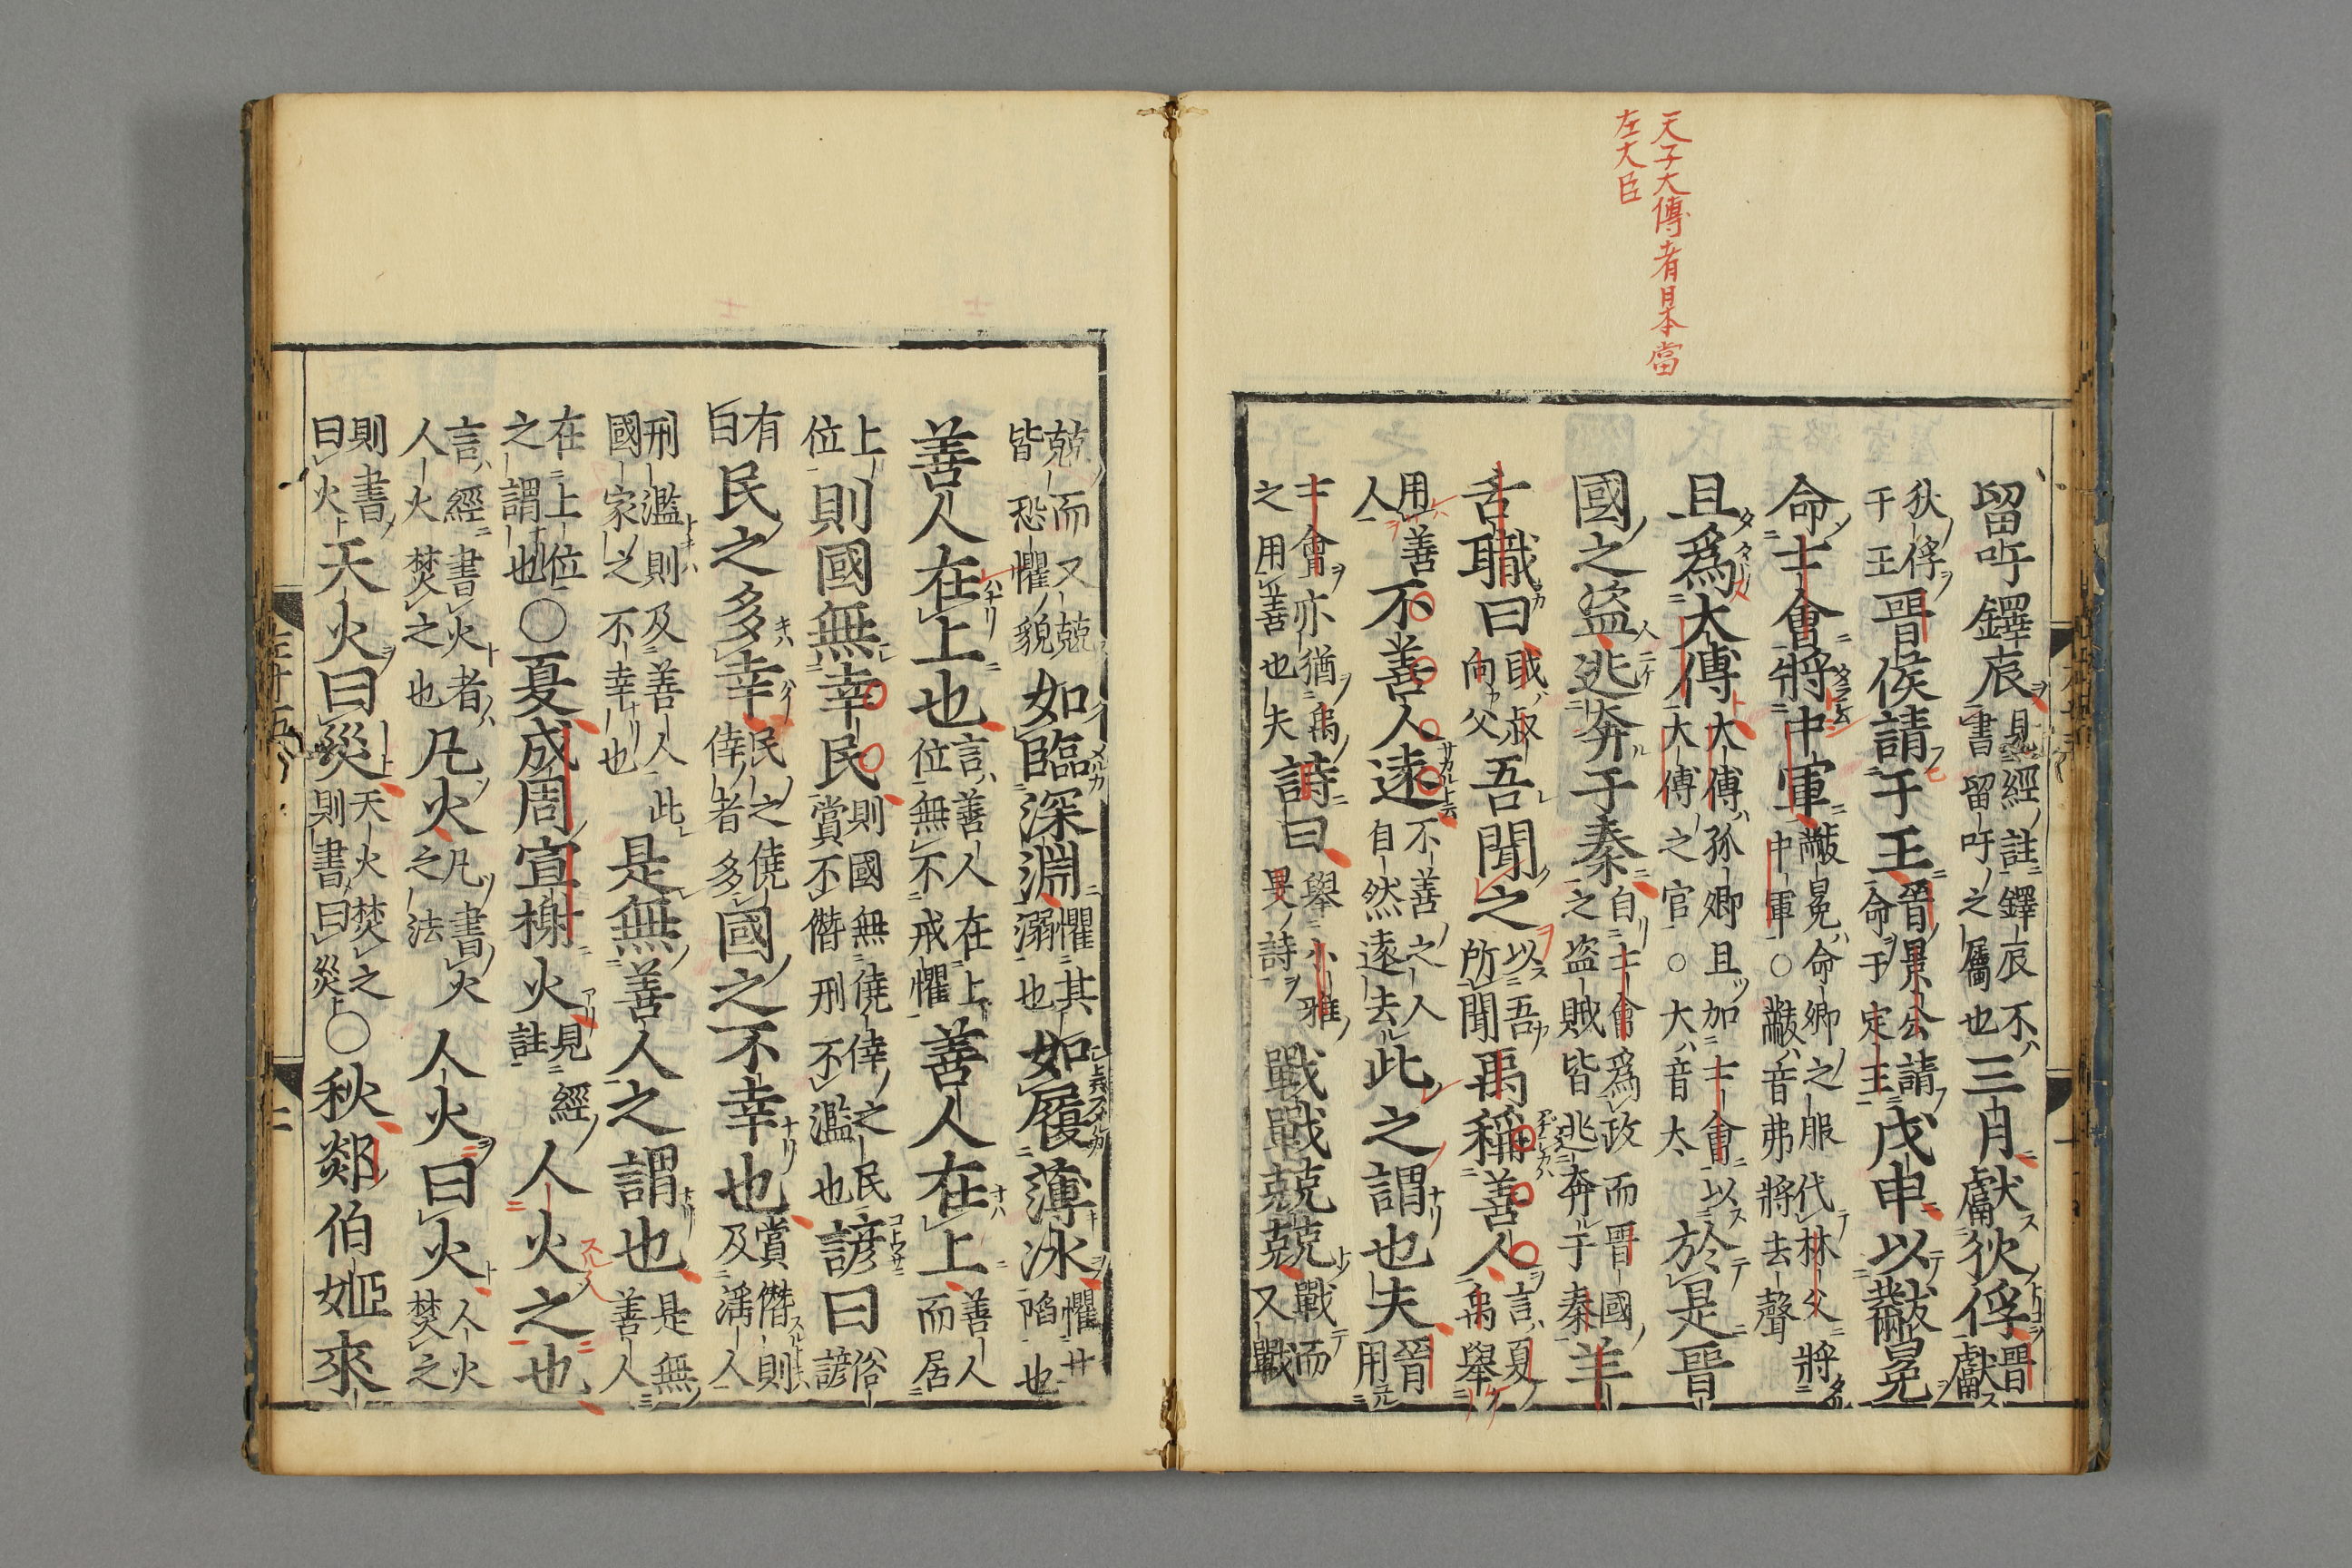 天子大傅者日本當
左大臣
留吁鐸辰見經註鐸辰不書留吁之屬也三月獻狄俘晋獻
狄俘于王晋侯請于王晉景公請命于定王戊申以黻冕
命士會將中軍黻冕命卿之服代林父將中軍○黻音弗將去聲
且爲大傅大傅孤卿且加士會以大傅之官○大音太於是晋
國之盜逃奔于秦自士會爲政而晋國之盜賊皆逃奔于秦羊
舌職曰職叔向父吾聞之以吾所聞禹稱善人言夏禹舉
用善人不善人遠不善之人自然遠去此之謂也夫晉用
士會亦猶禹之用善也夫詩曰舉小雅旻詩戰戰兢兢戰而又戰
兢而又兢皆恐懼貌如臨深淵懼其溺也如履薄冰懼其陷也
善人在上也言善人在上位無不戒懼善人在上善人而居
上位則國無幸民則國無僥倖之民賞不僭刑不濫也諺曰俗諺
有曰民之多幸民之僥倖者多國之不幸也賞僭則及淫人
刑濫則及善人此國家之不幸也是無善人之謂也是無善人
在上位之謂也○夏成周宣榭火見經註人火之也
言經書火者人火焚之也凡火凡書火之法人火曰火人火焚之
則書曰火天火曰災天火焚之則書曰災○秋郯伯姬來